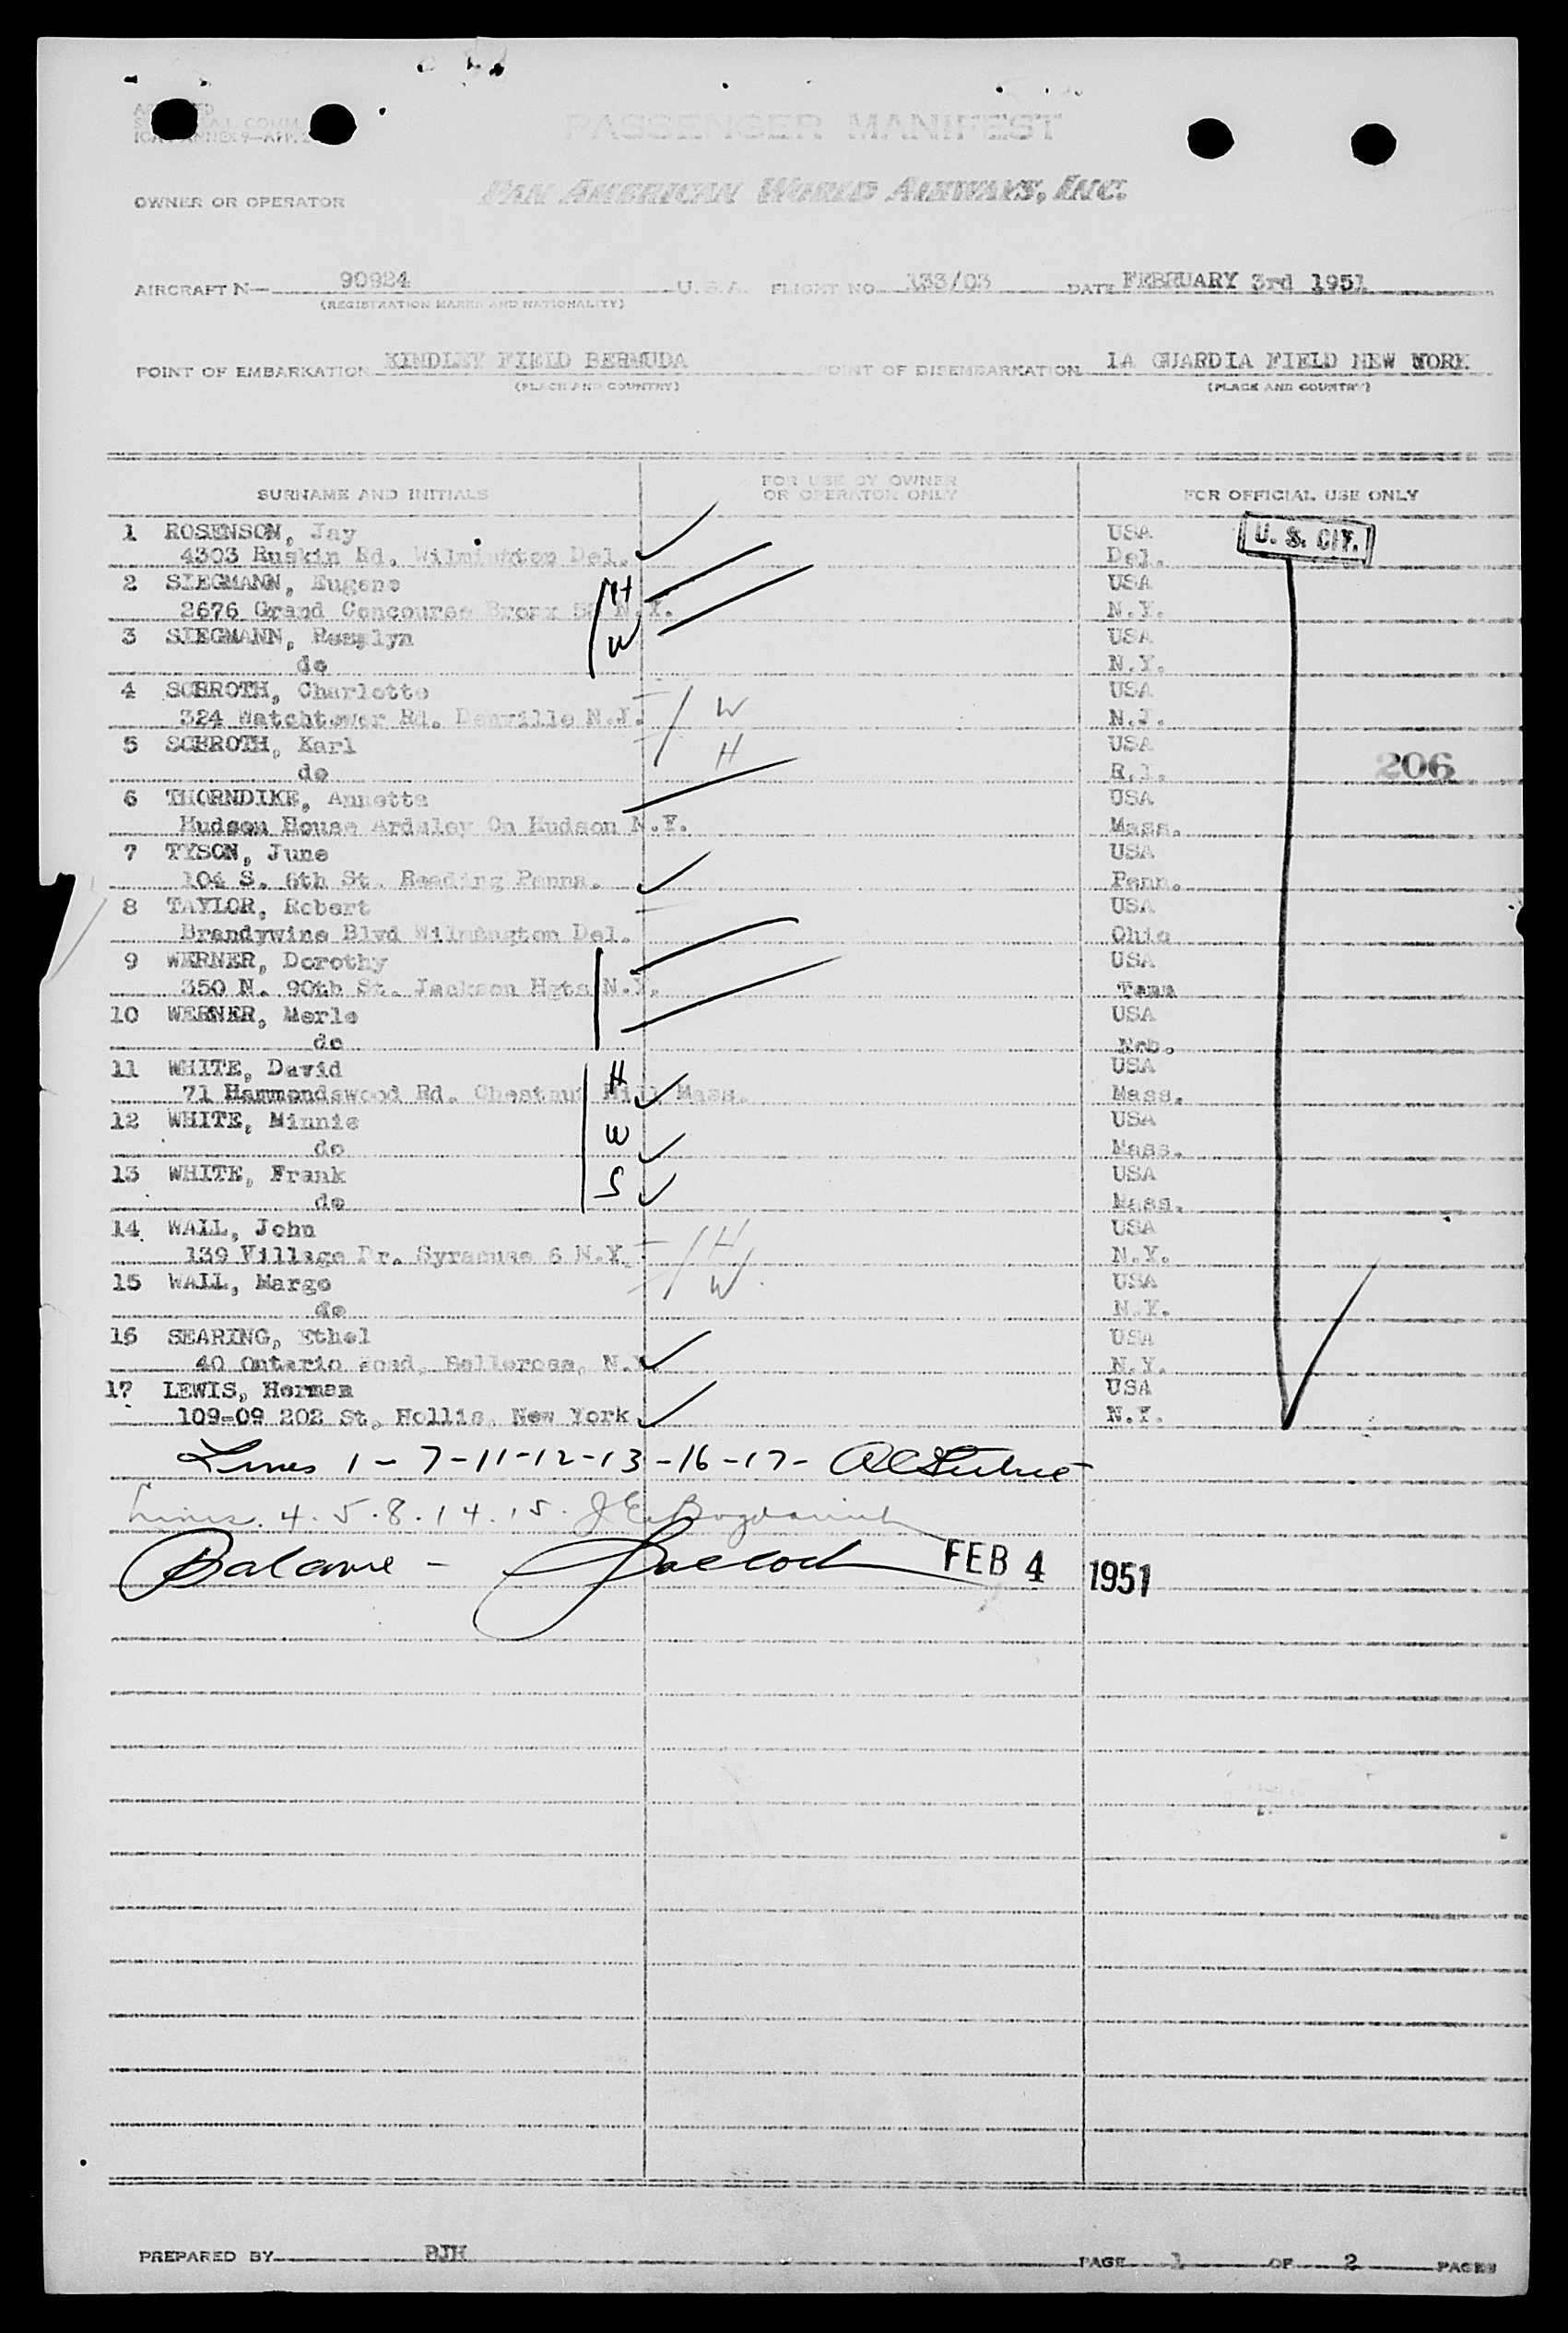 PASSENGER MANIFEST
OWNER OR OPERATOR PAN AMERICAN WORLD AIRWAYS, INC.
AIRCRAFT N— 90924 U.S.A. FLIGHT NO. 133/03 DATE FEBRUARY 3rd 1951
(REGISTRATION MARKS AND NATIONALITY)
POINT OF EMBARKATION KINDLEY FIELD BERMUDA POINT OF DISEMBARKATION LA GUARDIA FIELD NEW YORK
(PLACE AND COUNTRY) (PLACE AND COUNTRY)
SURNAME AND INITIALS FOR USE BY OWNER OR OPERATOR ONLY FOR OFFICIAL USE ONLY
1 ROSENSON, Jay USA U. S. CIT.
4303 Ruskin Rd. Wilmington Del. Del.
2 SIEGMANN, Eugene H USA
2676 Grand Concourse Bronx N.Y. N.Y.
3 SIEGMANN, Rosalyn W USA
do N.Y.
4 SCHROTH, Charlotte W USA
324 Watchtower Rd. Denville N.J. N.J.
5 SCHROTH, Karl H USA
do R.I. 206
6 THORNDIKE, Annette USA
Hudson House Ardsley On Hudson N.Y. Mass.
7 TYSON, June USA
104 S. 6th St. Reading Penna. Penn.
8 TAYLOR, Robert USA
Brandywine Blvd Wilmington Del. Ohio
9 WERNER, Dorothy USA
350 N. 90th St. Jackson Hgts N.Y. Tenn
10 WERNER, Merle USA
do Neb.
11 WHITE, David H USA
71 Hammondswood Rd. Chestnut Hill Mass. Mass.
12 WHITE, Minnie W USA
do Mass.
13 WHITE, Frank S USA
do Mass.
14 WALL, John H USA
139 Village Dr. Syracuse 6 N.Y. N.Y.
15 WALL, Margo W USA
do N.Y.
16 SEARING, Ethel USA
40 Ontario Road, Bellerose, N.Y. N.Y.
17 LEWIS, Herman USA
109-09 202 St, Hollis, New York N.Y.
Lines 1-7-11-12-13-16-17-
Lines. 4. 5. 8. 14. 15.
Balance - FEB 4 1951
PREPARED BY BJH PAGE 1 OF 2 PAGES